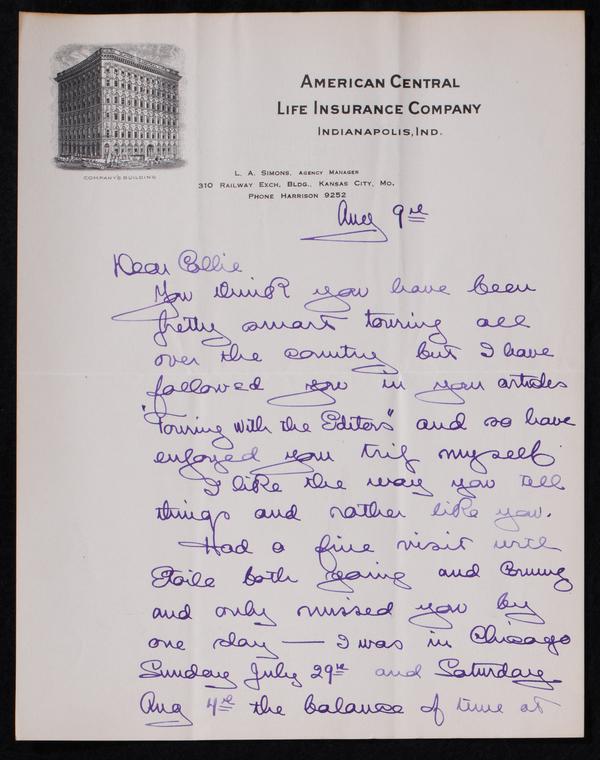 AMERICAN CENTRAL
LIFE INSURANCE COMPANY
INDIANAPOLIS, IND.
COMPANY'S BUILDING
L. A. SIMONS, AGENCY MANAGER
310 RAILWAY EXCH. BLDG., KANSAS CITY, MO.
PHONE HARRISON 9252
Aug 9th
Dear Ollie
You think you have been
pretty smart touring all
over the country but I have
followed you in your articles
"Touring with the Editors" and so have
enjoyed your trip myself.
I like the way you tell
things and rather like you.
Had a fine visit with
Etoile both going and coming
and only missed you by
one day — I was in Chicago
Sunday July 29th and Saturday
Aug 4th the balance of time at